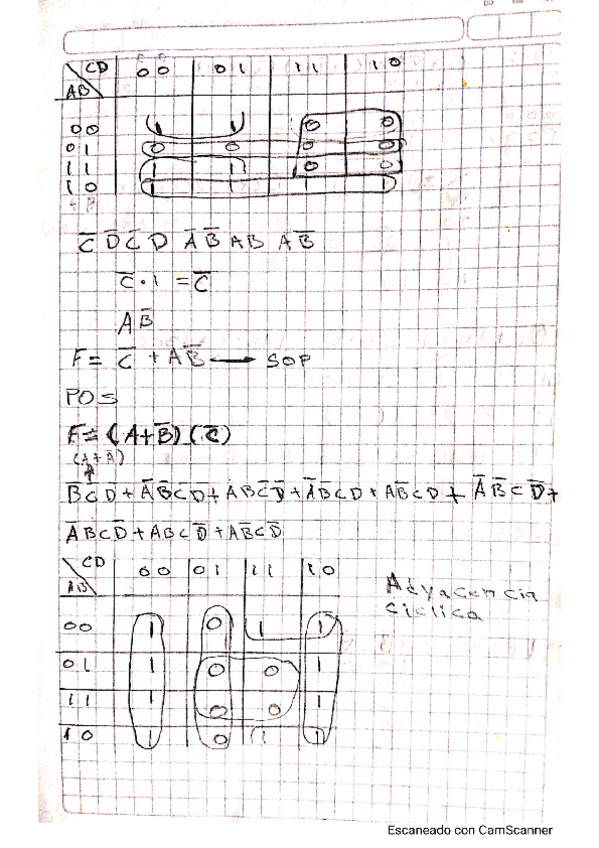 CD 00 01 11 10
AB
00 1 1 0 0
01 0 0 0 0
11 1 1 0 0
10 1 1 1 1
C̅ D̅ C̅ D A̅ B̅ A B A B̅
C̅ · 1 = C̅
A B̅
F = C̅ + A B̅ → SOP
POS
F = (A + B̅) (C̅)
(A + A̅)
B̅ C̅ D̅ + A̅ B̅ C D + A B C̅ D̅ + A̅ B̅ C D + A B̅ C D + A̅ B̅ C D̅ +
A̅ B C D̅ + A B C D̅ + A B̅ C D̅
CD 00 01 11 10
AB
00 1 0 1 1
01 1 0 0 1
11 1 0 0 1
10 1 0 1 1
Adyacencia
ciclica
Escaneado con CamScanner